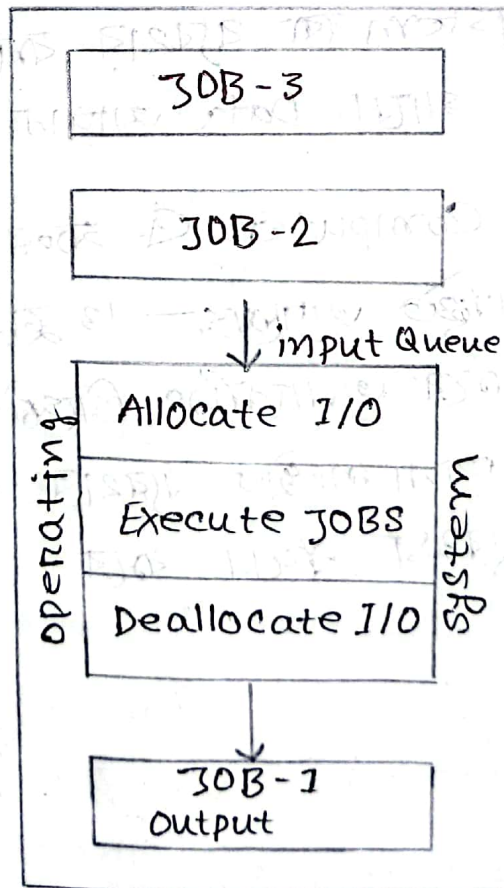 JOB-3
JOB-2
input Queue
operating
Allocate I/O
Execute JOBS
Deallocate I/O
system
JOB-1
Output